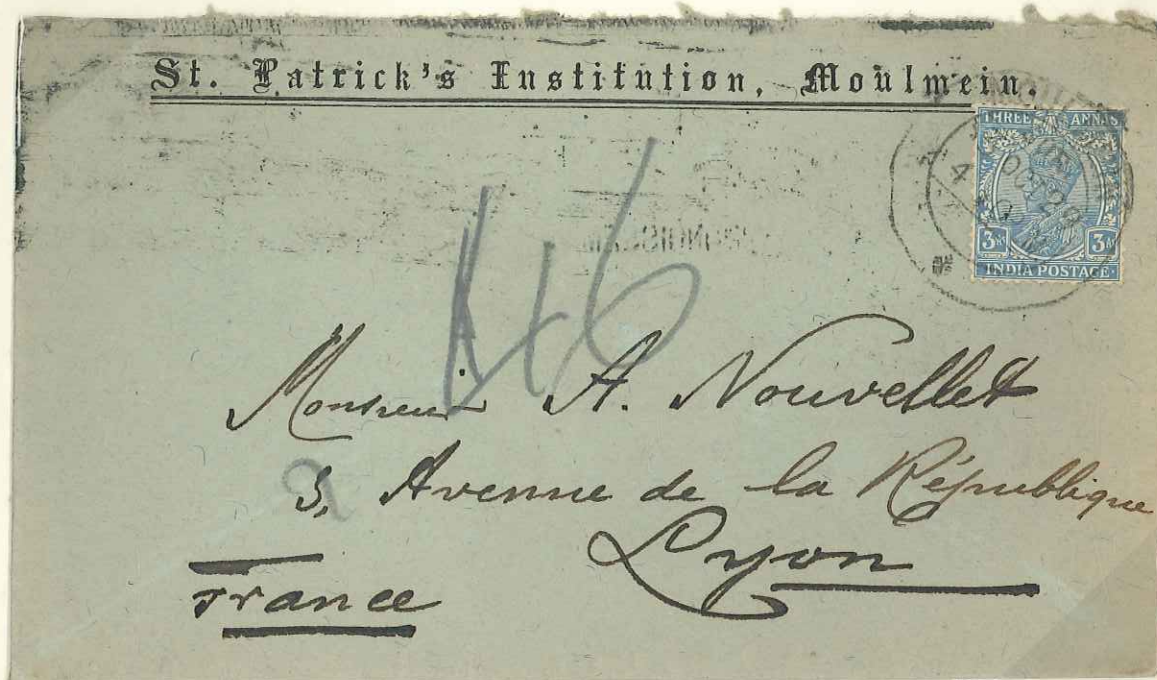 St. Patrick's Institution, Moulmein.
THREE ANNAS
3As 3As
INDIA POSTAGE
4 OCT 29
46
Monsieur A. Nouvellet
3, Avenue de la République
Lyon
France